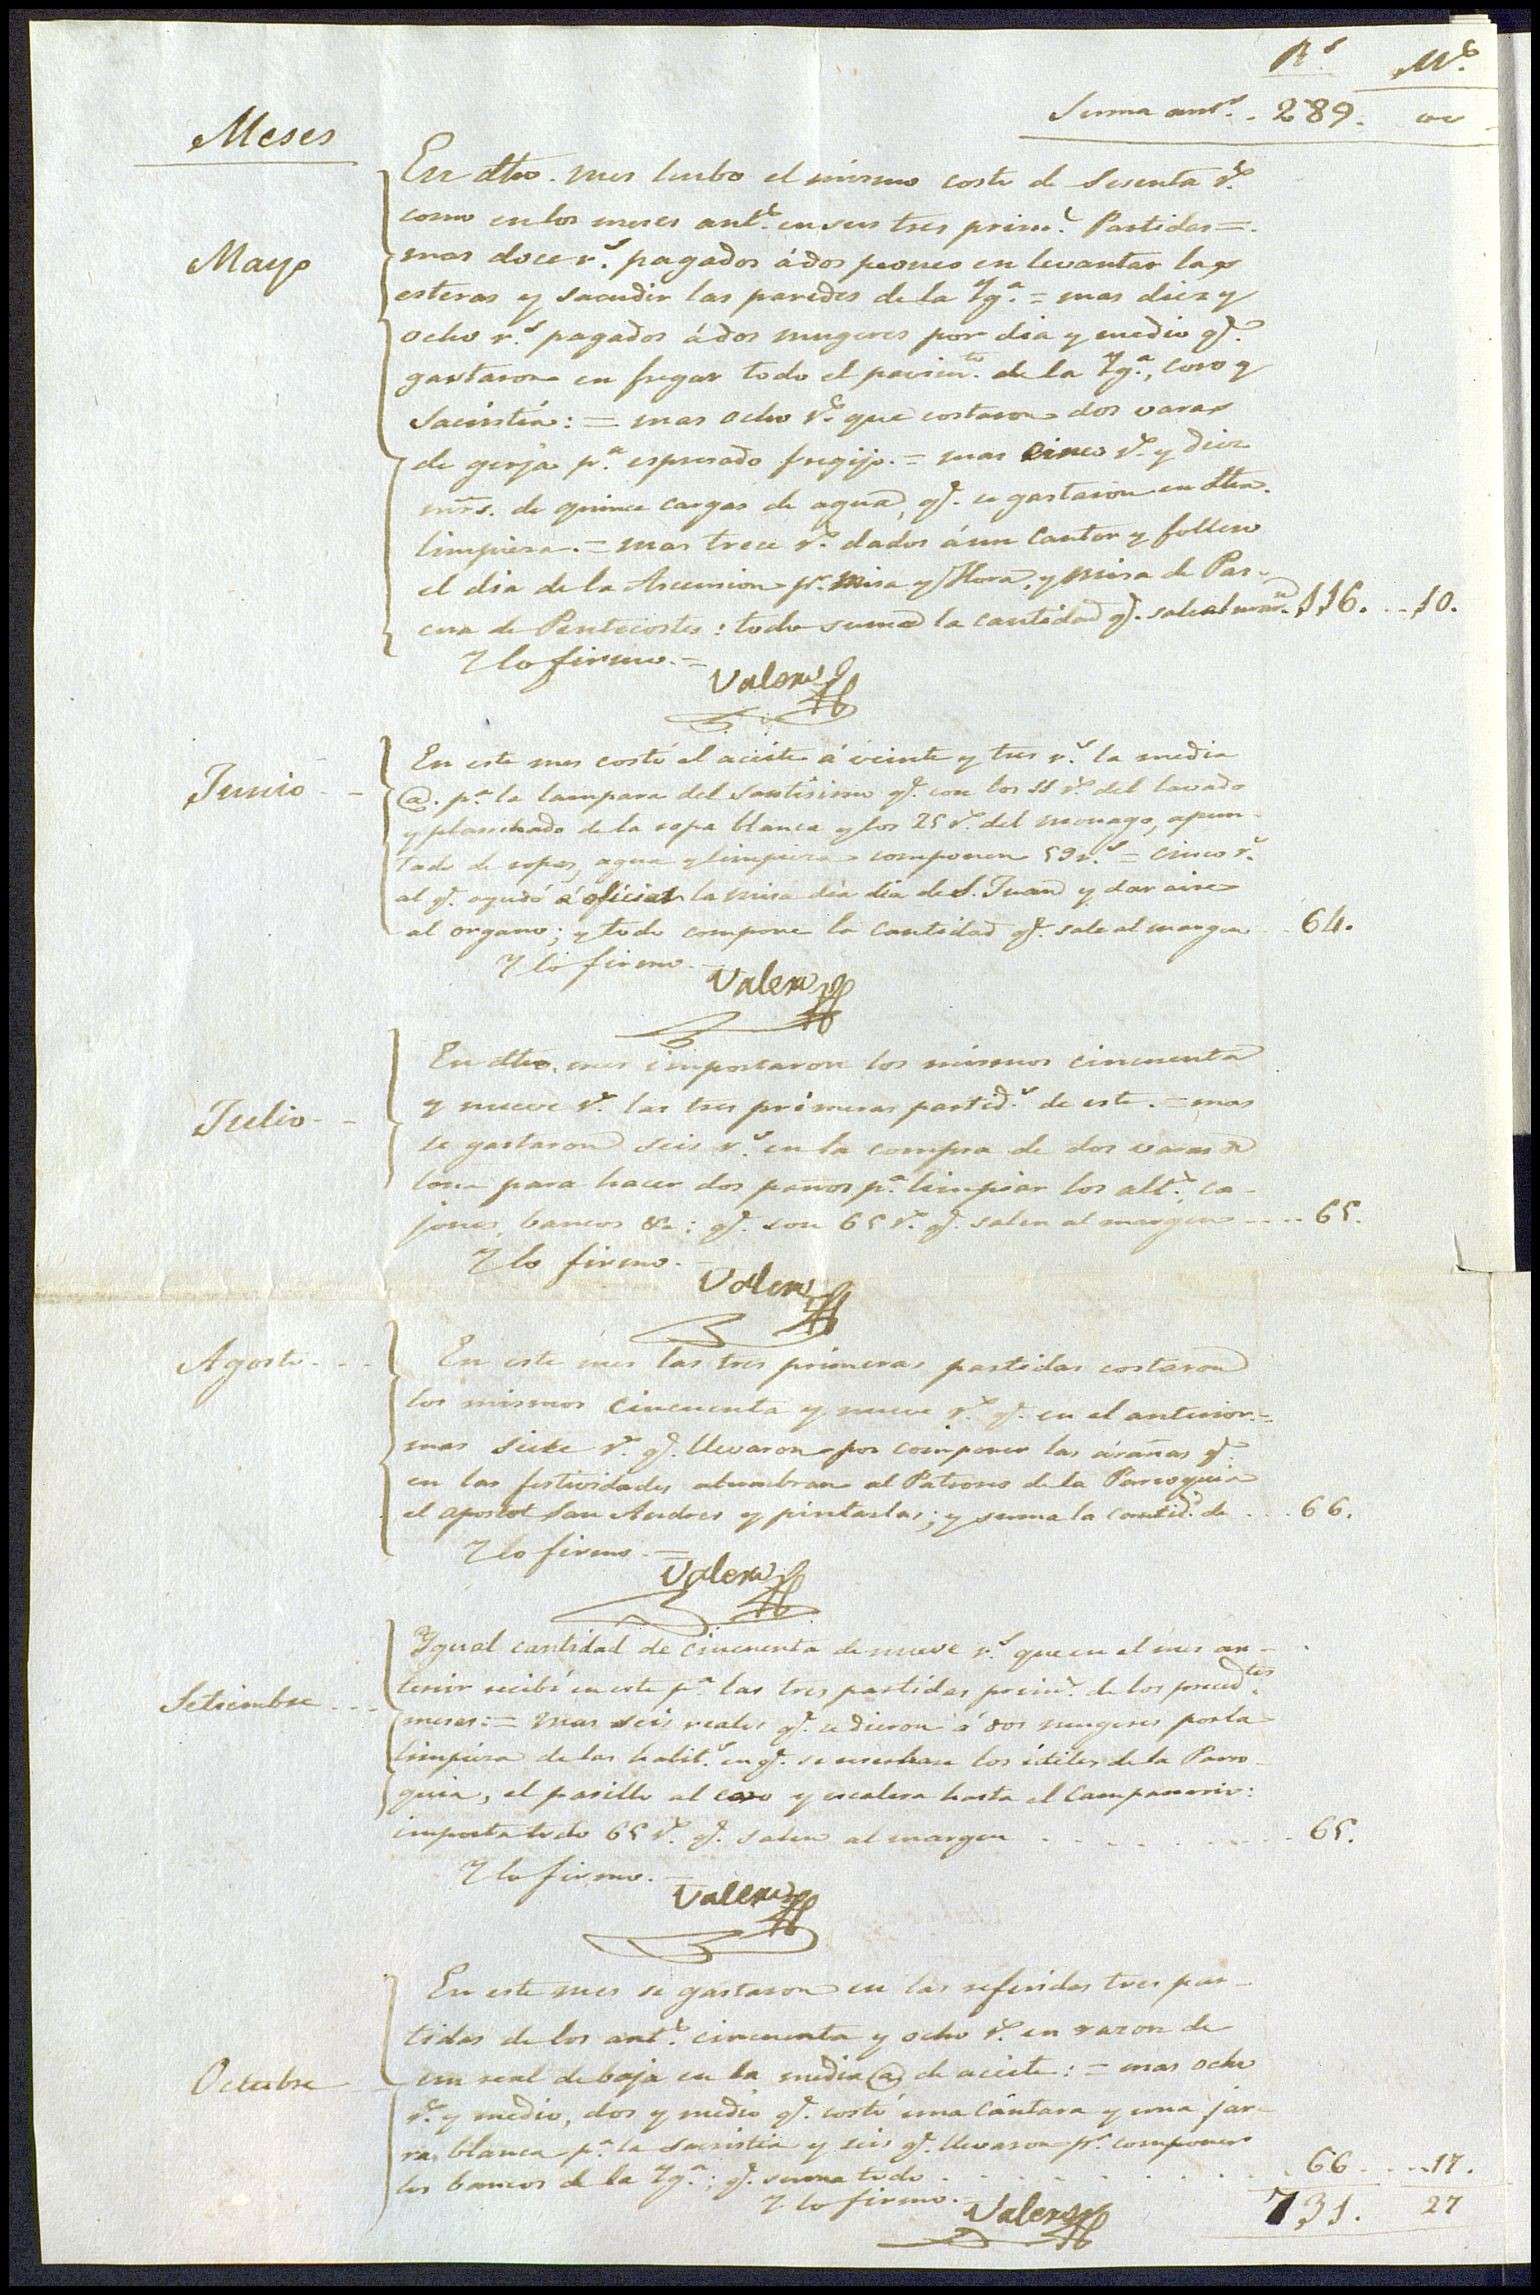 R.s M.s
Suma ant.r . 289. 00
Meses
En dho. mes tubo el mismo coste de sesenta r.s
como en los meses ant.s en sus tres prim.s Partidas =.
Mayo
mas doce r.s pagados á dos peones en levantar las
esteras y sacudir las paredes de la Yg.a = mas diez y
ocho r.s pagados á dos mugeres por dia y medio q.e
gastaron en fregar todo el pavim.to de la Yg.a, coro y
Sacristía: = mas ocho r.s que costaron dos varas
de gerja p.a espresado fregijo. = mas cinco r.s y diez
mrs. de quince cargas de agua, q.e se gastaron en dha.
limpieza. = mas trece r.s dados á un Cantor y follero
el dia de la Ascension p.r Misa y Hora, y Misa de Pas-
cua de Pentecostes: todo suma la cantidad q.e sale al marg.n 116. . . 10.
Y lo firmo. =
Valero
Junio - -
En este mes costó el aceite á veinte y tres r.s la media
@. p.a la lampara del Santisimo q.e con los 11 r.s del lavado
y planchado de la ropa blanca y los 25 r.s del monago, apun-
tado de ropas, agua y limpieza componen 59 r.s = cinco r.s
al q.e ayudó á oficiar la misa dia dia de S. Juan y dar aire
al organo; y todo compone la cantidad q.e sale al margen . . 64.
Y lo firmo. -
Valero
Julio - -
En dho. mes importaron los mismos cincuenta
y nueve r.s las tres primeras partid.s de este. = mas
se gastaron seis r.s en la compra de dos varas de
lona para hacer dos paños p.a limpiar los alt.s, ca-
jones, bancos &a: q.e son 65 r.s q.e salen al margen . . . . 65.
Y lo firmo. -
Valero
Agosto - - -
En este mes las tres primeras partidas costaron
los mismos cincuenta y nueve r.s q.e en el anterior. =
mas siete r.s q.e llevaron por componer las arañas q.e
en las festividades alumbran al Patrono de la Parroquia
el apostol San Andres y pintarlas; y suma la cantid.d de . . . 66.
Y lo firmo. =
Valero
Setiembre - - -
Ygual cantidad de cincuenta de nueve r.s que en el mes an-
terior recibí en este p.a las tres partidas prim.s de los preced.tes
meses: = mas seis reales q.e se dieron á dos mugeres por la
limpieza de las habit.s en q.e se encierran los útiles de la Parro-
quia, el pasillo al coro y escalera hasta el Campanario:
importa todo 65 r.s q.e salen al margen . . . . . . . . 65.
Y lo firmo. -
Valero
En este mes se gastaron en las referidas tres par-
tidas de los ant.s cincuenta y ocho r.s en razon de
Octubre
un real de baja en la media @ de aceite: = mas ocho
r.s y medio, dos y medio q.e costó una cántara y una jar-
ra blanca p.a la Sacristia y seis q.e llevaron p.r componer
los bancos de la Yg.a: q.e suma todo . . . . . . . . 66 . . . . 17.
Y lo firmo. -
Valero
731. 27